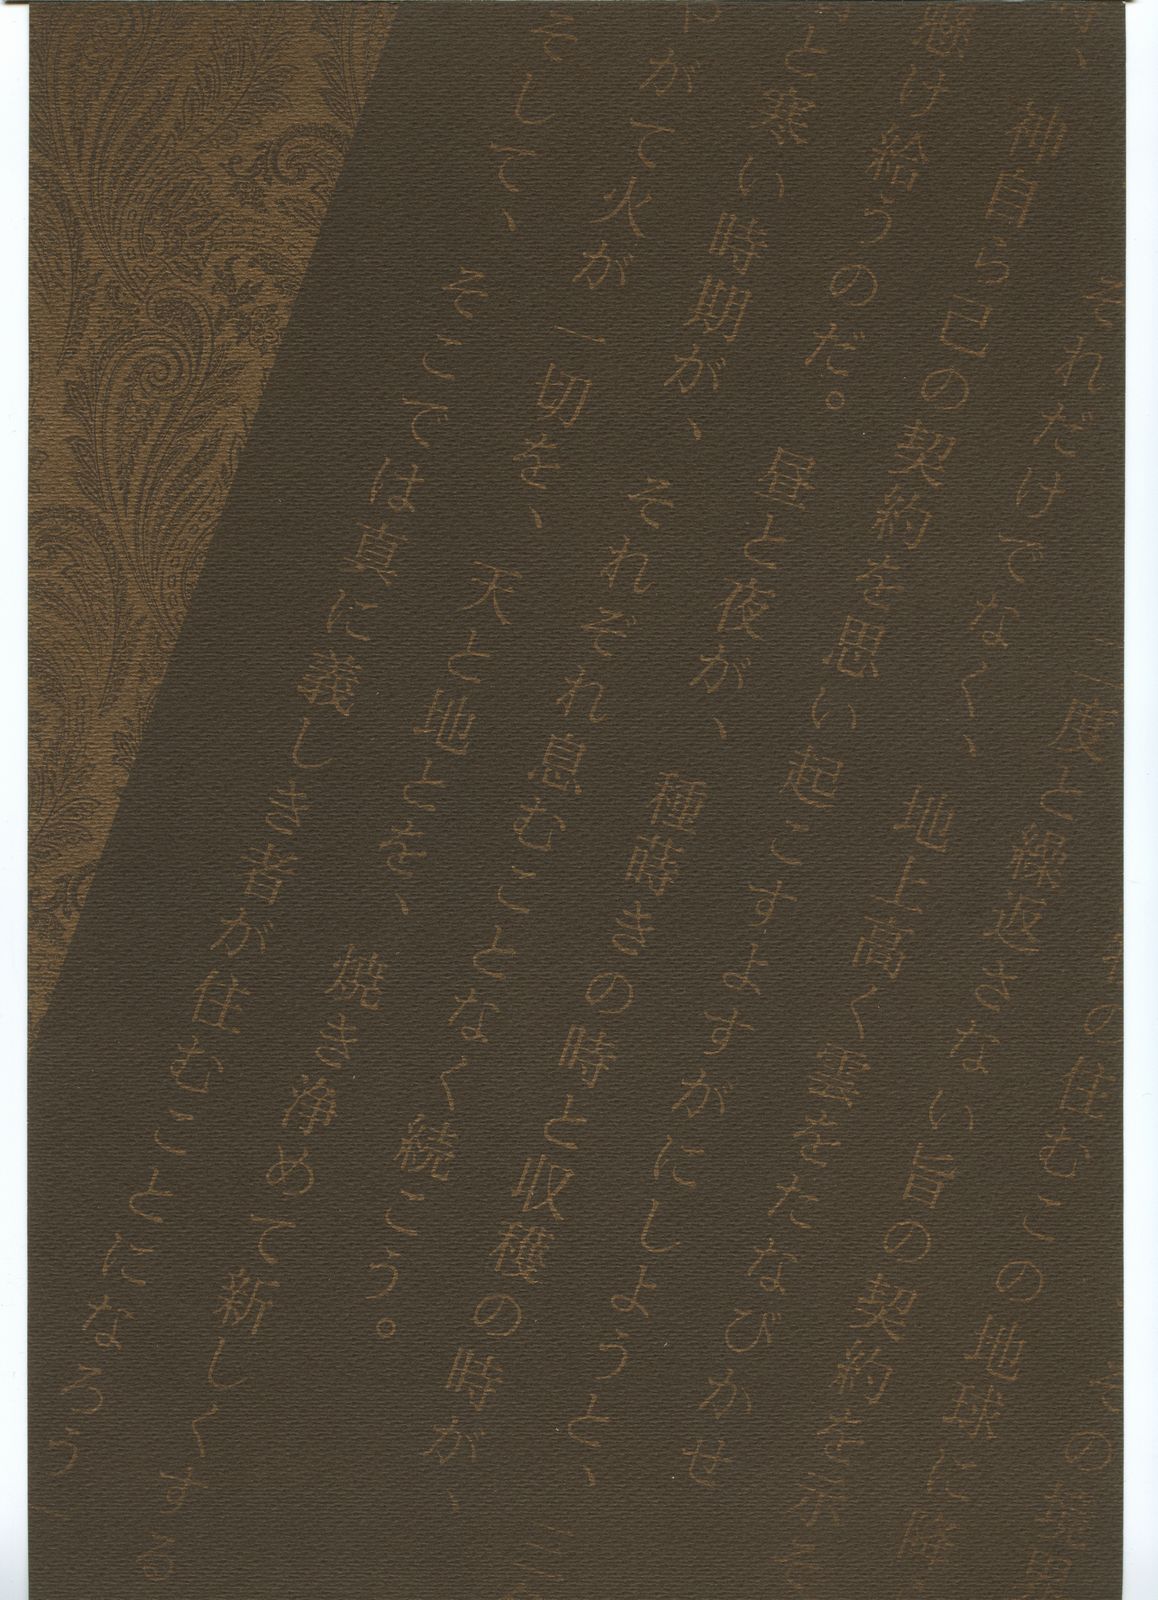 その境界
の住むこの地球に降
二度と繰返さない旨の契約を示そ
それだけでなく、地上高く雲をたなびかせ
、神自ら己の契約を思い起こすよすがにしようと、三
懸け給うのだ。昼と夜が、種蒔きの時と収穫の時が、
と寒い時期が、それぞれ息むことなく続こう。
やがて火が一切を、天と地とを、焼き浄めて新しくする
そして、そこでは真に義しき者が住むことになろう